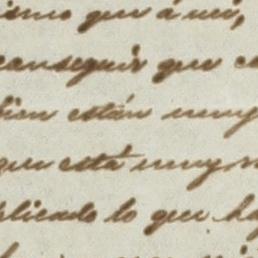 ismo que á mi,
conseguir que
bien están muy
que está muy
plicado lo que ha